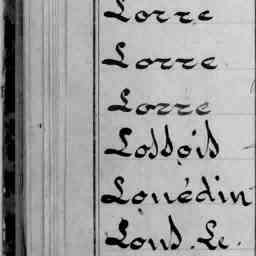 Lorre
Lorre
Lorre
Lossois
Louédin
Lous. Le.